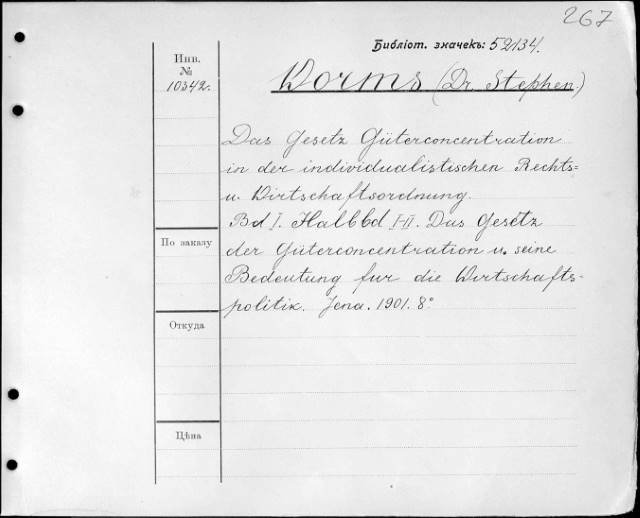 267
Библіот. значекъ: 52134.
Инв.
№
10342.
Worms (Dr. Stephen)
Das Gesetz Güterconcentration
in der individualistischen Rechts=
u. Wirtschaftsordnung.
Bd I. Halbbd I-II. Das Gesetz
der Güterconcentration u. seine
Bedeutung fur die Wirtschafts-
politik. Jena. 1901. 8°
По заказу
Откуда
Цѣна